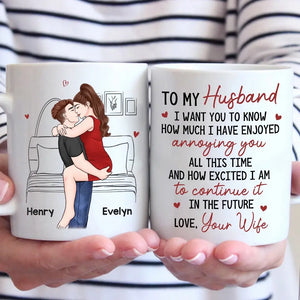 Henry Evelyn
TO MY Husband
I WANT YOU TO KNOW
HOW MUCH I HAVE ENJOYED
annoying you
ALL THIS TIME
AND HOW EXCITED I AM
to continue it
IN THE FUTURE
LOVE, Your Wife